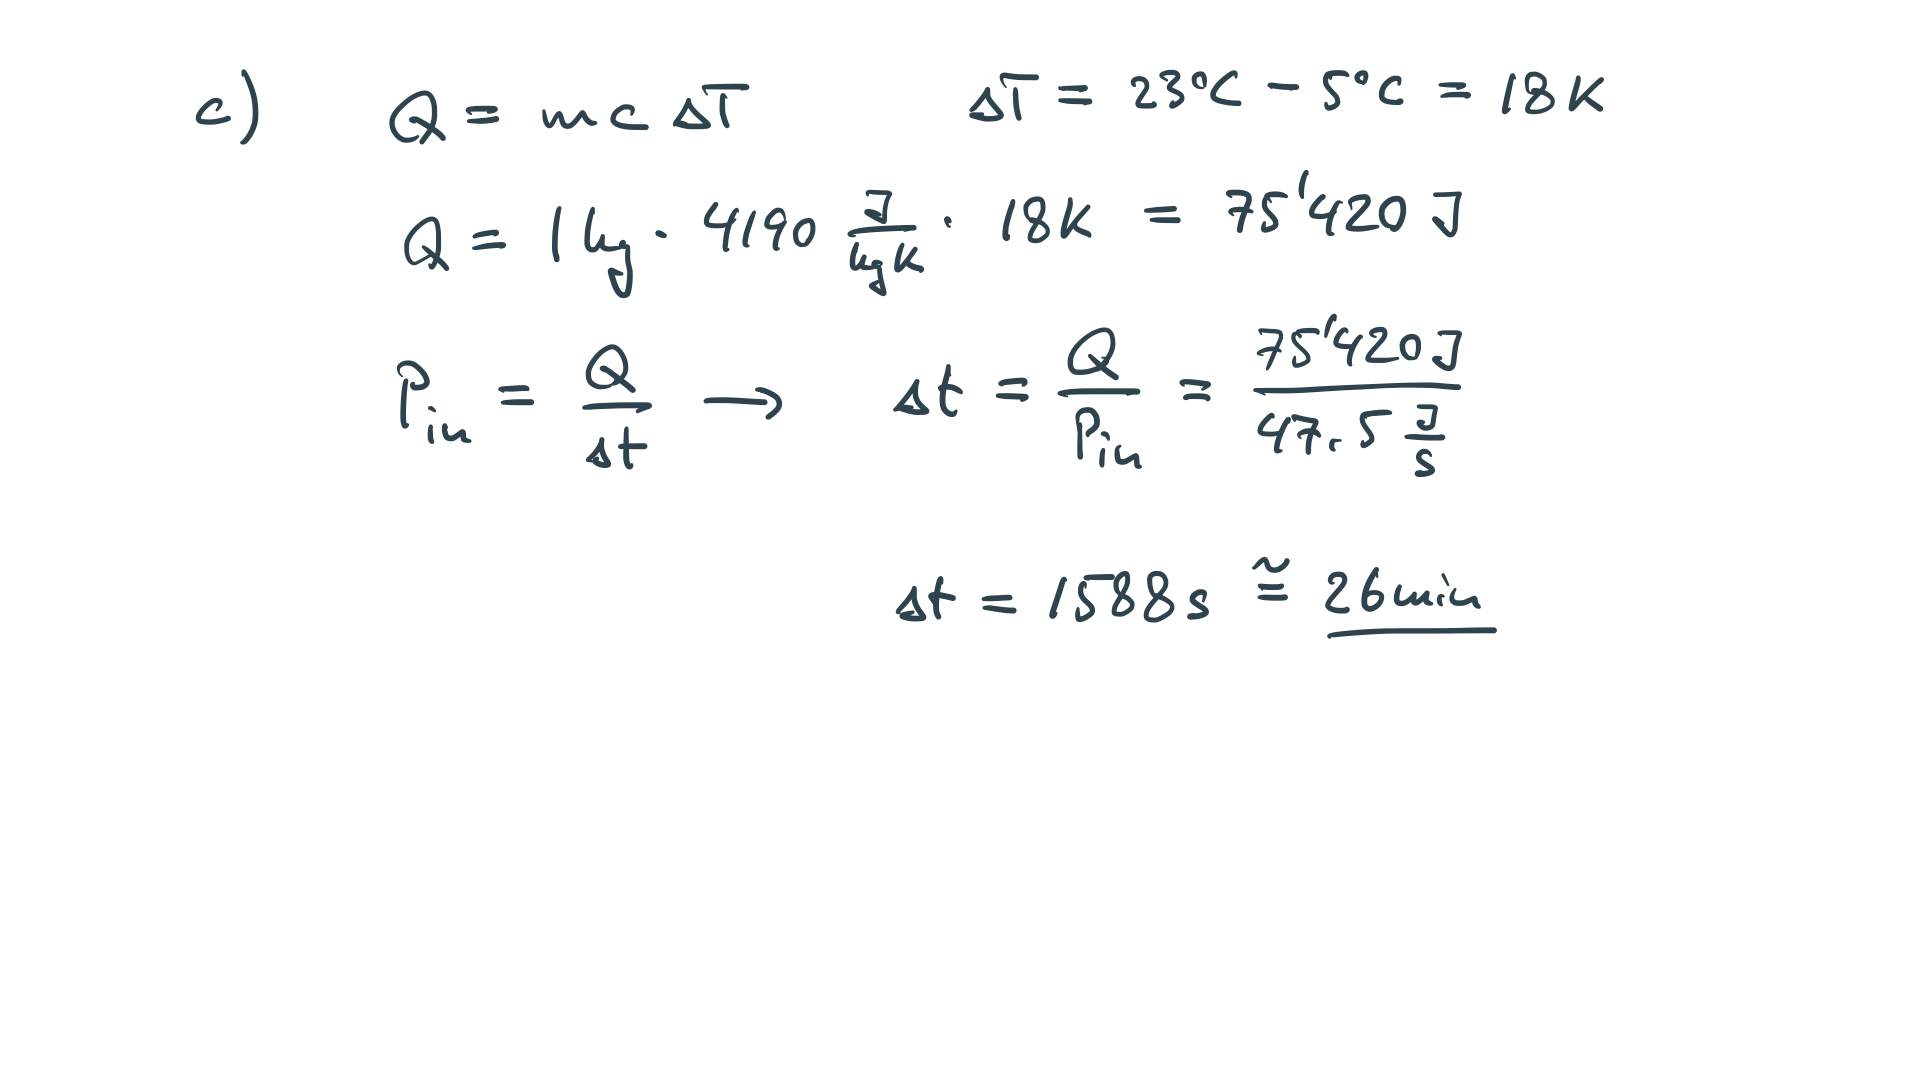 c) Q = mcΔT ΔT = 23°C - 5°C = 18K
Q = 1kg · 4190 J/kgK · 18K = 75'420 J
Pin = Q/Δt → Δt = Q/Pin = 75'420J / 47.5 J/s
Δt = 1588s ≅ 26min